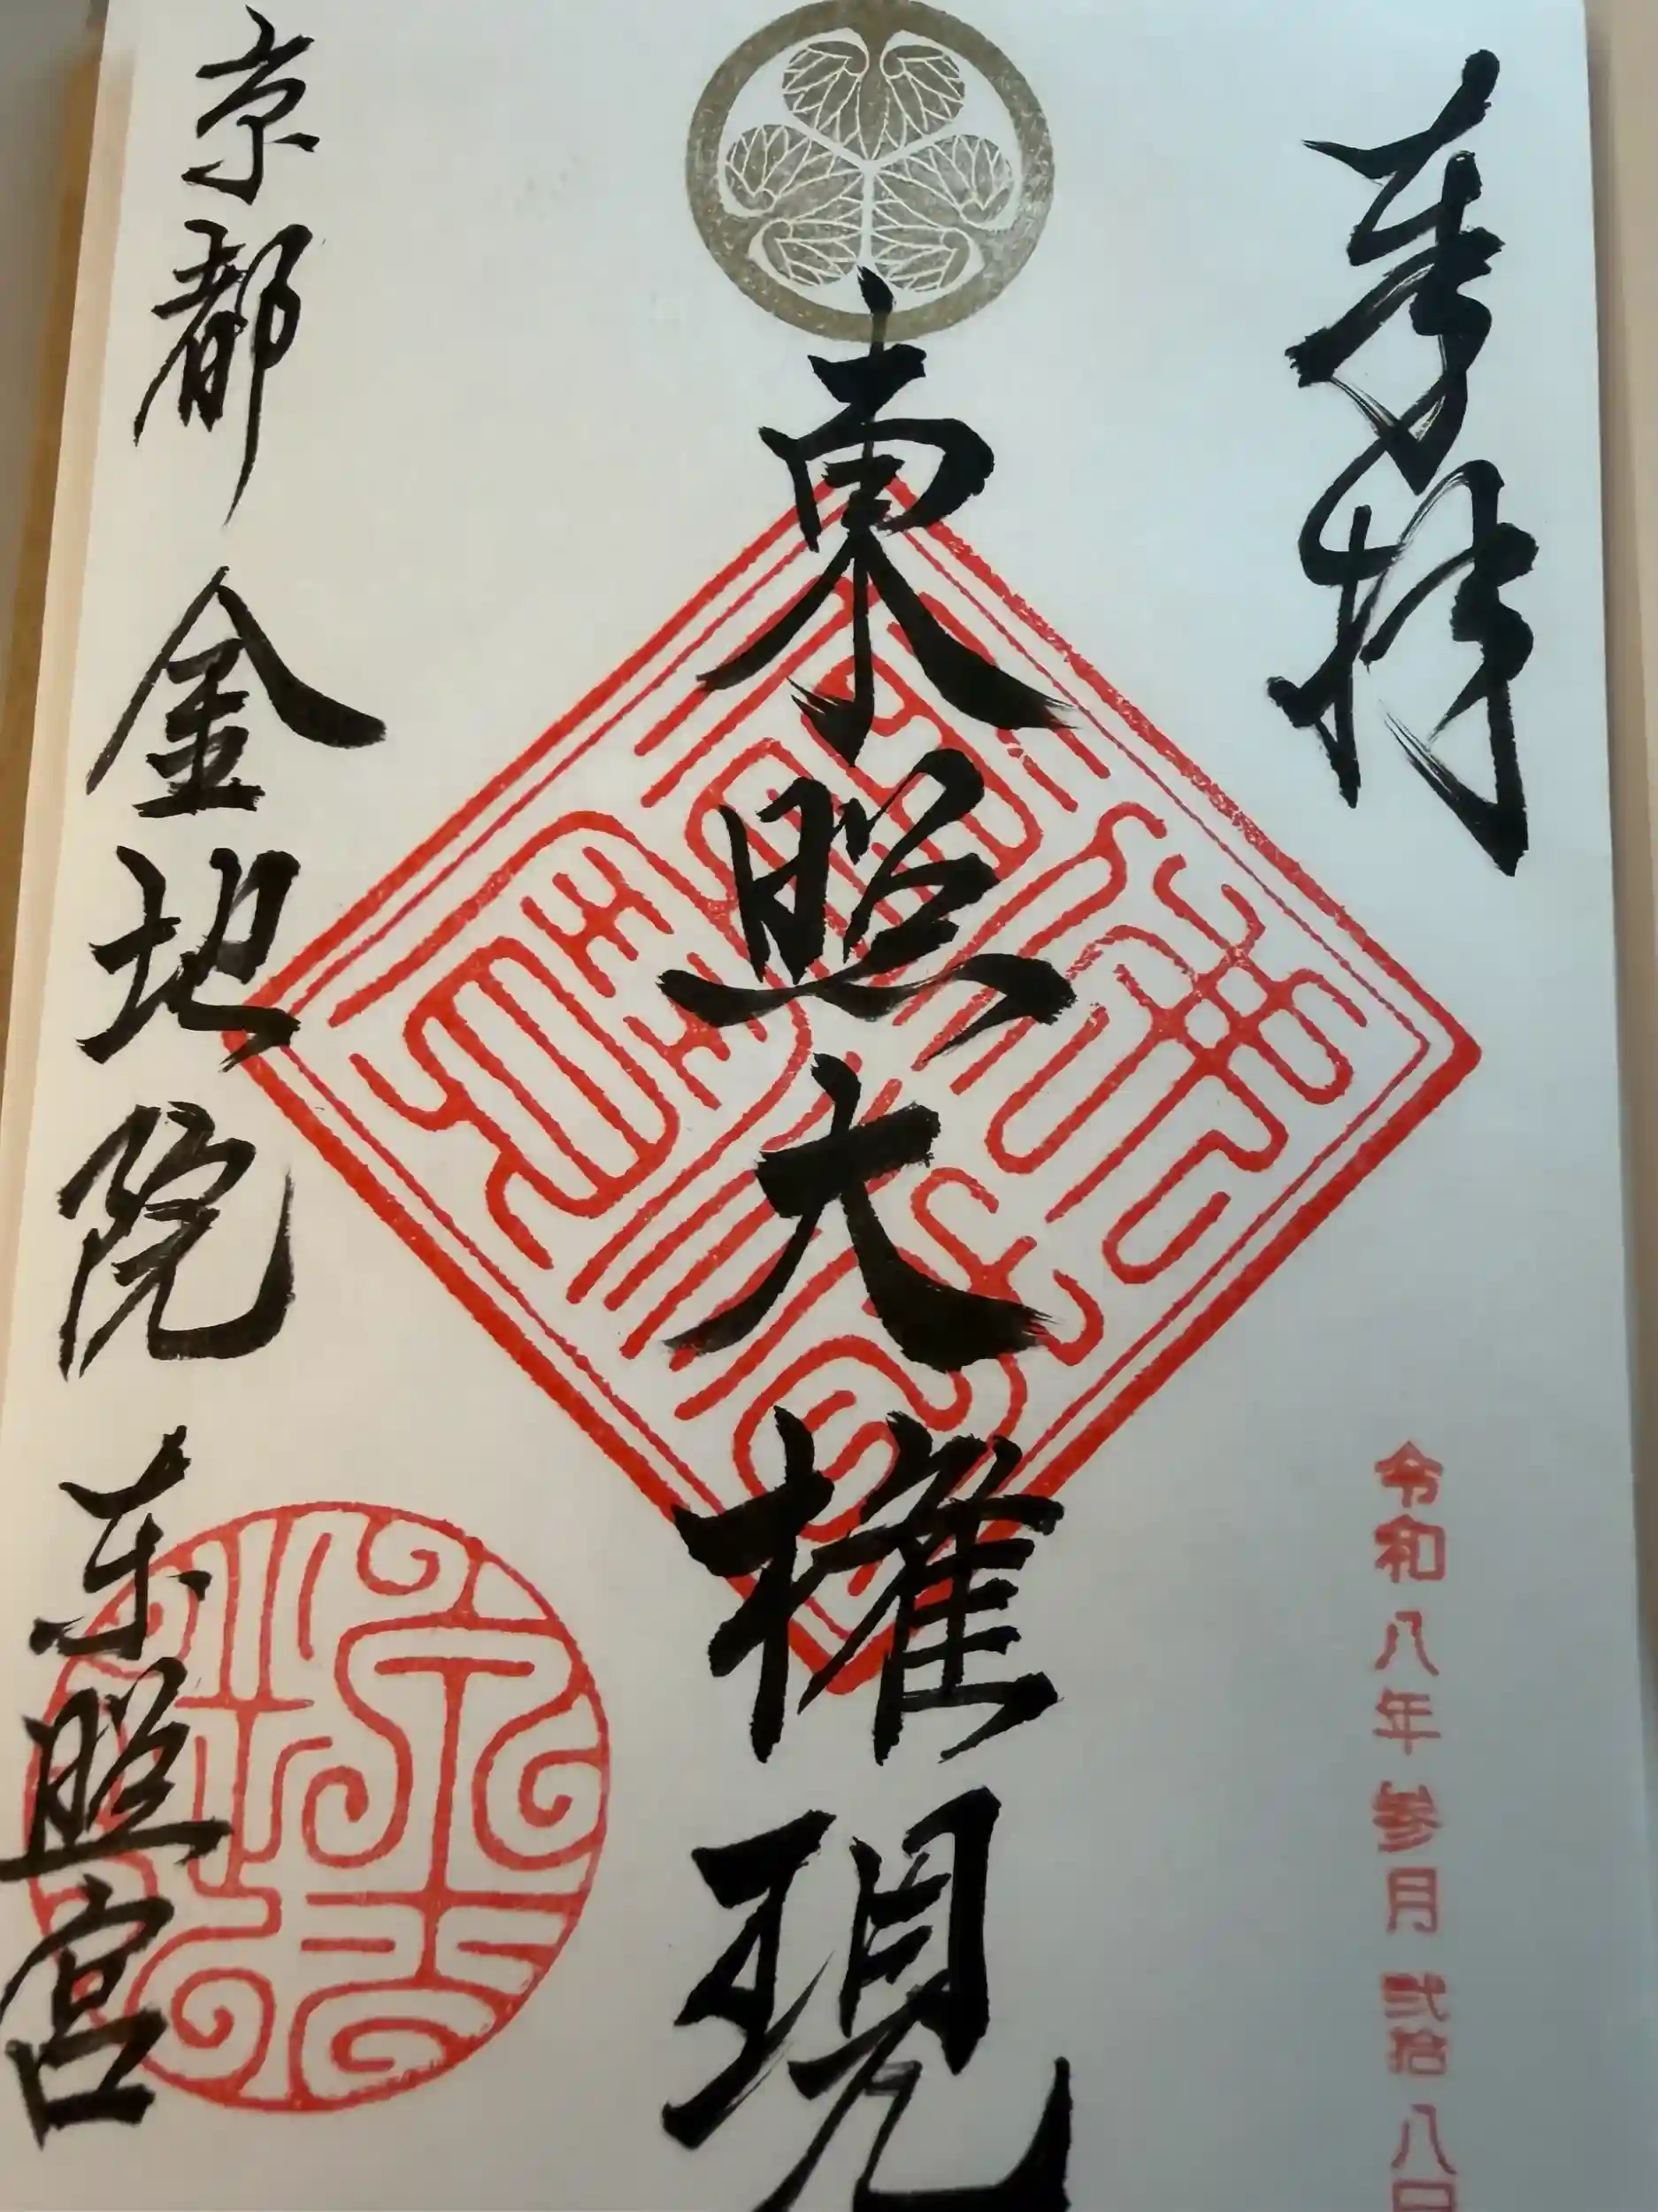 奉拝
令和八年参月弐拾八日
東照大権現
京都 金地院 東照宮